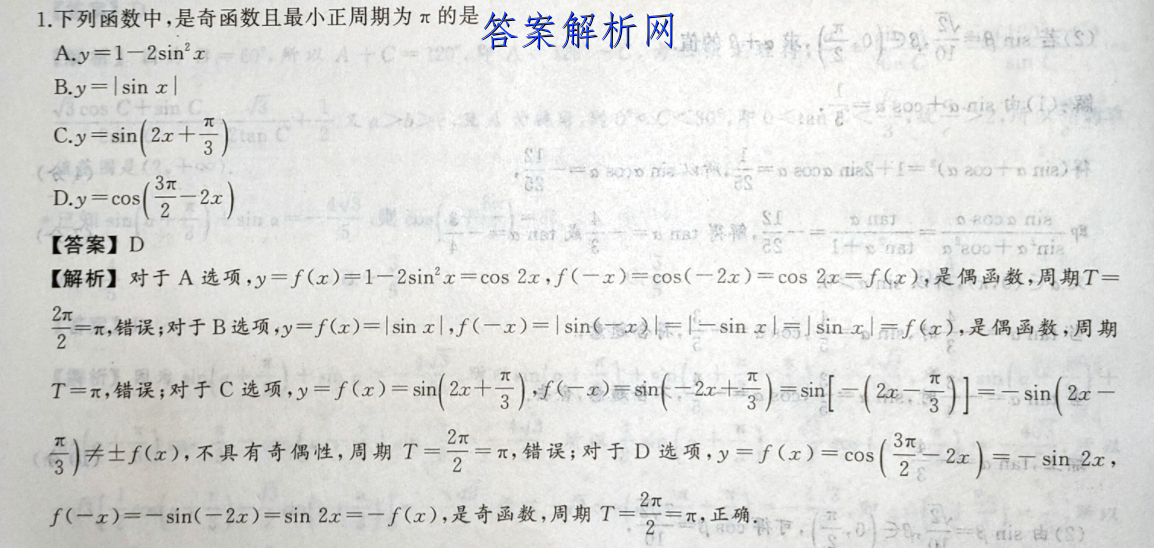 1.下列函数中,是奇函数且最小正周期为 π 的是
答案解析网
A.y=1-2sin²x
B.y=|sin x|
C.y=sin(2x+π/3)
D.y=cos(3π/2-2x)
【答案】D
【解析】对于 A 选项,y=f(x)=1-2sin²x=cos 2x,f(-x)=cos(-2x)=cos 2x=f(x),是偶函数,周期T=
2π/2=π,错误;对于B选项,y=f(x)=|sin x|,f(-x)=|sin(-x)|=|-sin x|=|sin x|=f(x),是偶函数,周期
T=π,错误;对于 C 选项,y=f(x)=sin(2x+π/3),f(-x)=sin(-2x+π/3)=sin[-(2x-π/3)]=-sin(2x-
π/3)≠±f(x),不具有奇偶性,周期 T=2π/2=π,错误;对于 D 选项,y=f(x)=cos(3π/2-2x)=-sin 2x,
f(-x)=-sin(-2x)=sin 2x=-f(x),是奇函数,周期 T=2π/2=π,正确.